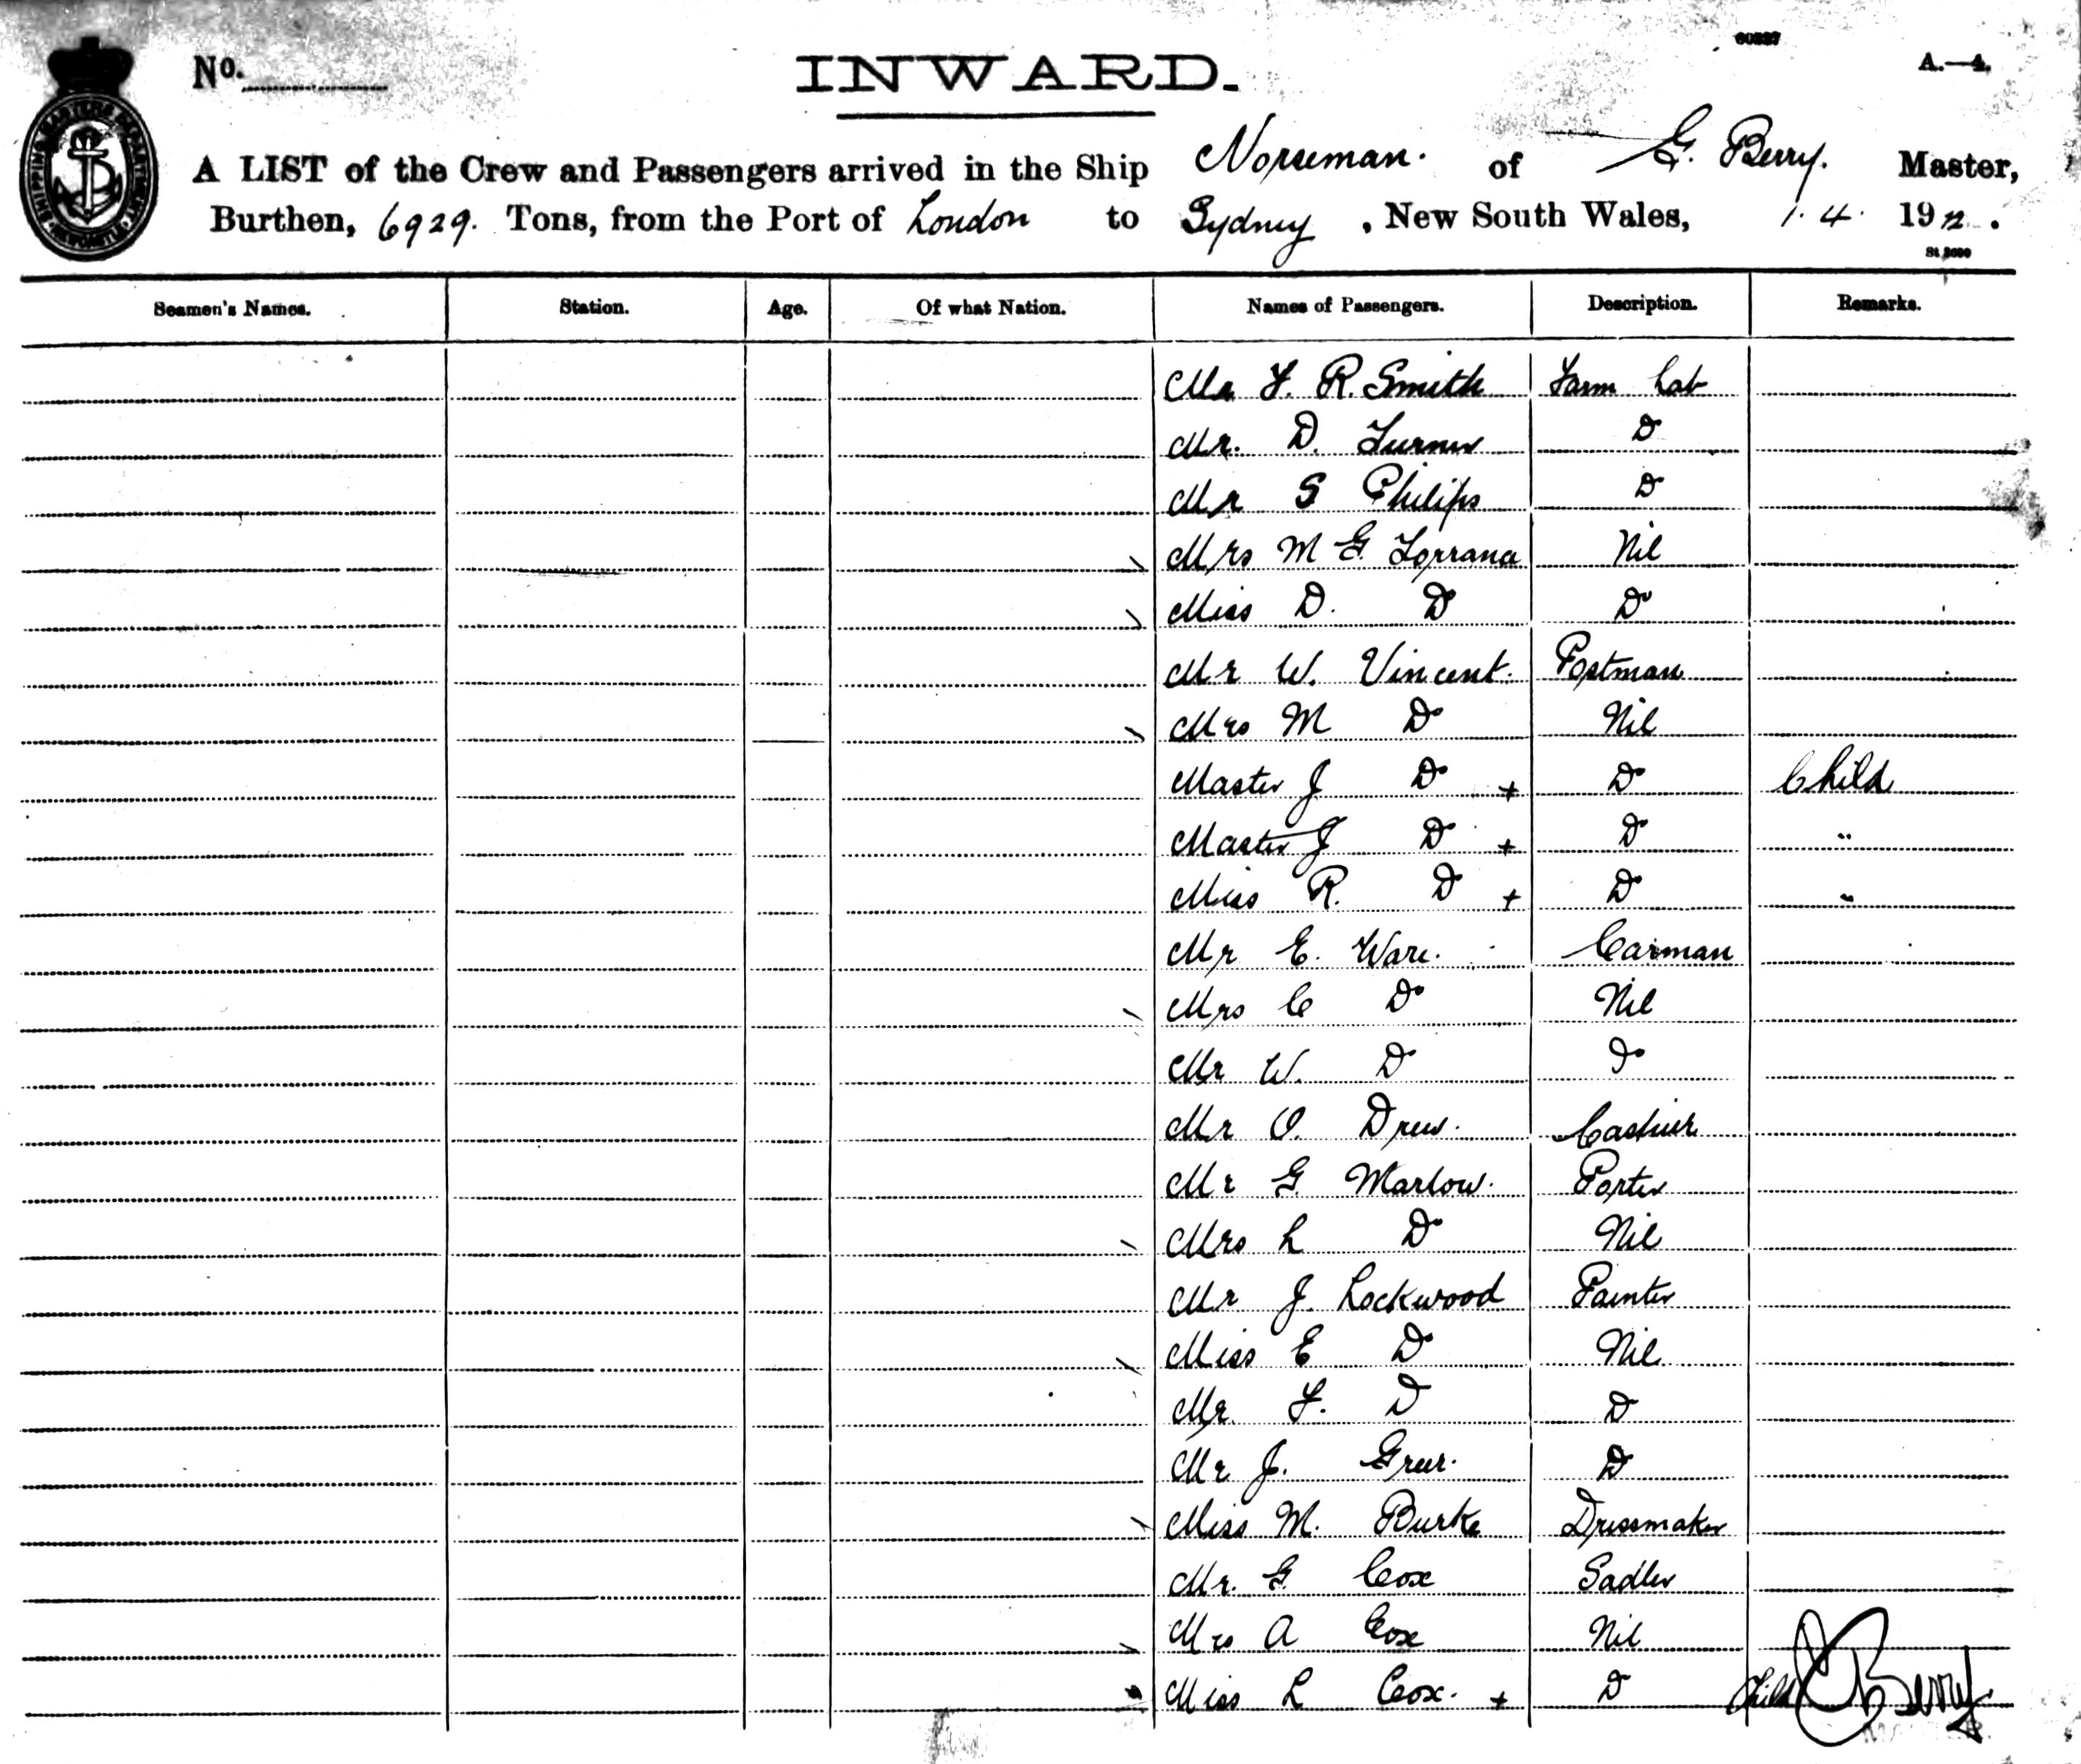 60227
No. INWARD. A.—4.
A LIST of the Crew and Passengers arrived in the Ship Norseman. of G. Berry. Master,
Burthen, 6929. Tons, from the Port of London to Sydney, New South Wales, 1.4. 1912.
St 2600
Seamen's Names. Station. Age. Of what Nation. Names of Passengers. Description. Remarks.
Mr F. R. Smith Farm Lab
Mr. D. Turner Do
Mr S Philips Do
Mrs M G. Lorrana Nil
Miss D. Do Do
Mr W. Vincent. Postman
Mrs M Do Nil
Master J Do + Do Child
Master J Do + Do "
Miss R. Do + Do "
Mr E. Ware. Carman
Mrs C Do Nil
Mr W. Do Do
Mr O. Drew. Cashier
Mr G Marlow. Porter
Mrs L Do Nil
Mr J. Lockwood Painter
Miss E Do Nil
Mr. F. Do Do
Mr J. Greer. Do
Miss M. Burke Dressmaker
Mr. G Cox Sadler
Mrs A Cox Nil
Miss L Cox. + Do Child
G Berry